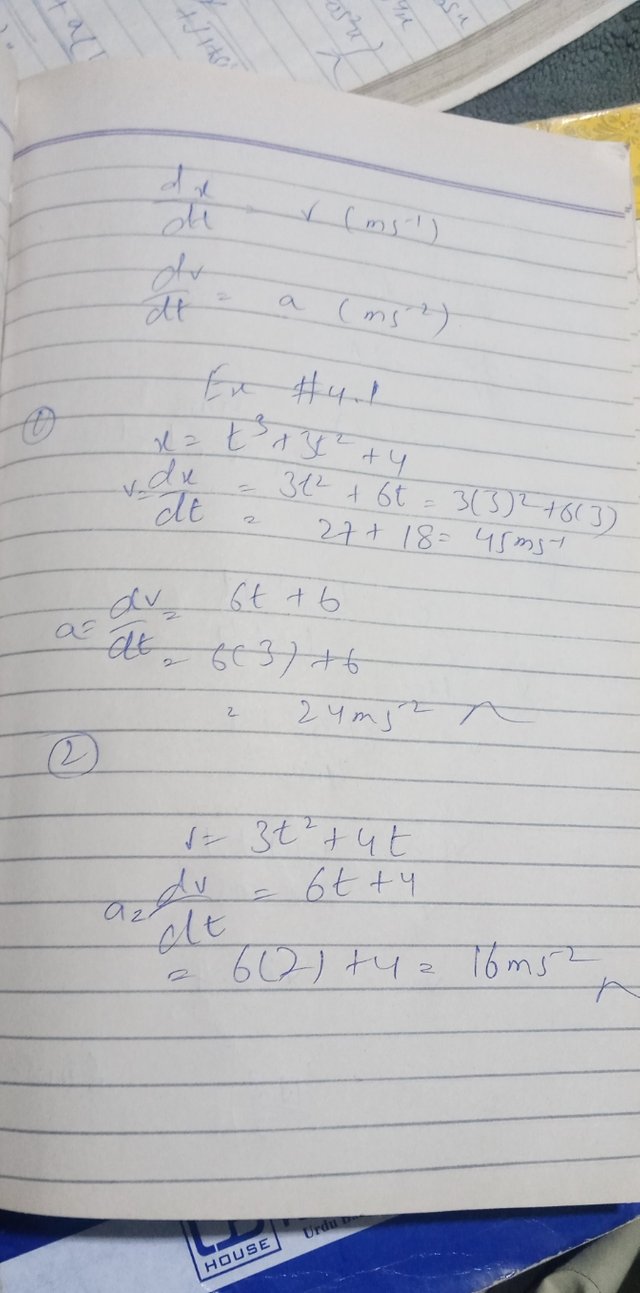 dx/dt = v (ms⁻¹)
dv/dt = a (ms⁻²)
Ex #4.1
①
x = t³ + 3t² + 4
v = dx/dt = 3t² + 6t = 3(3)² + 6(3)
= 27 + 18 = 45ms⁻¹
a = dv/dt = 6t + 6
= 6(3) + 6
= 24ms⁻²
②
v = 3t² + 4t
a = dv/dt = 6t + 4
= 6(2) + 4 = 16ms⁻²
HOUSE
Urdu